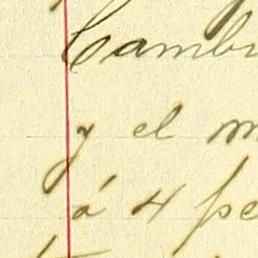 Cambi
y el m
á 4 pe